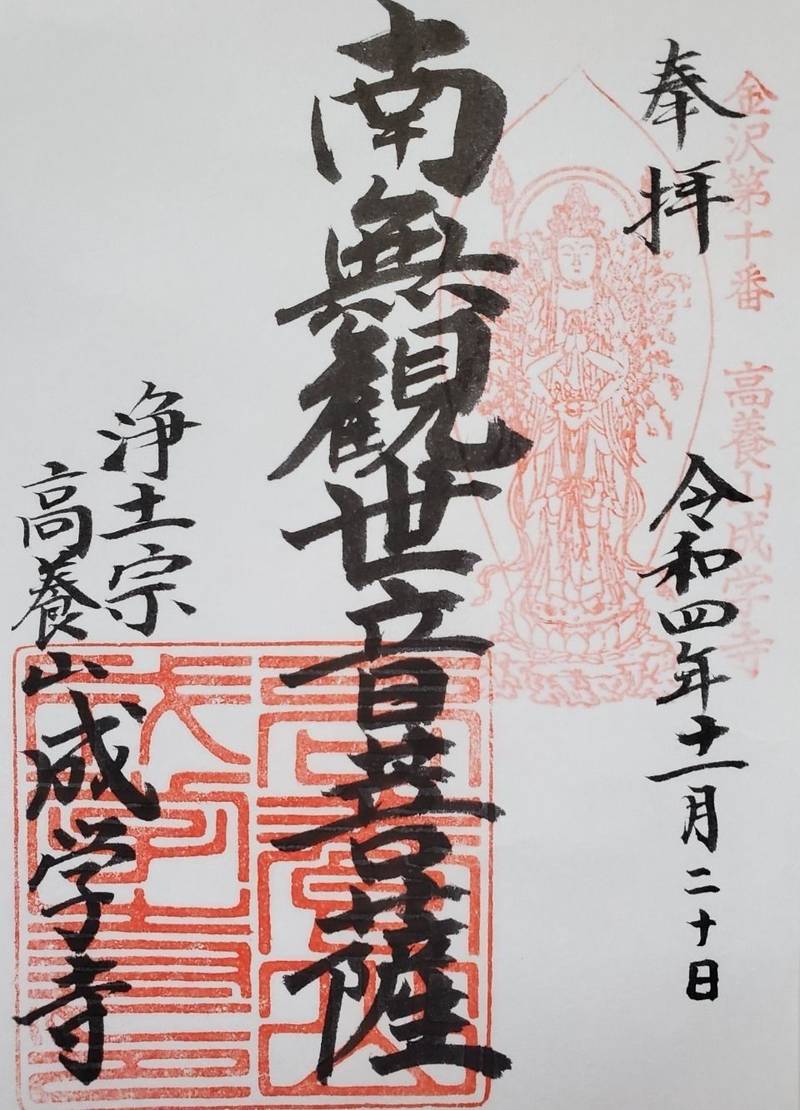 金沢第十番 高養山成学寺
奉拝
令和四年十一月二十日
南無観世音菩薩
浄土宗
高養山成学寺